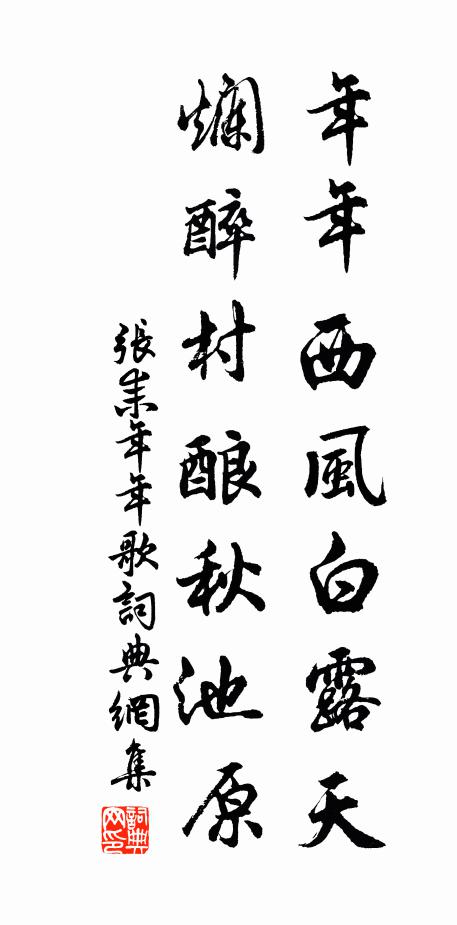 年年西風白露天
爛醉村酿秋池原
張耒年年歌詞典網集
詞典网印